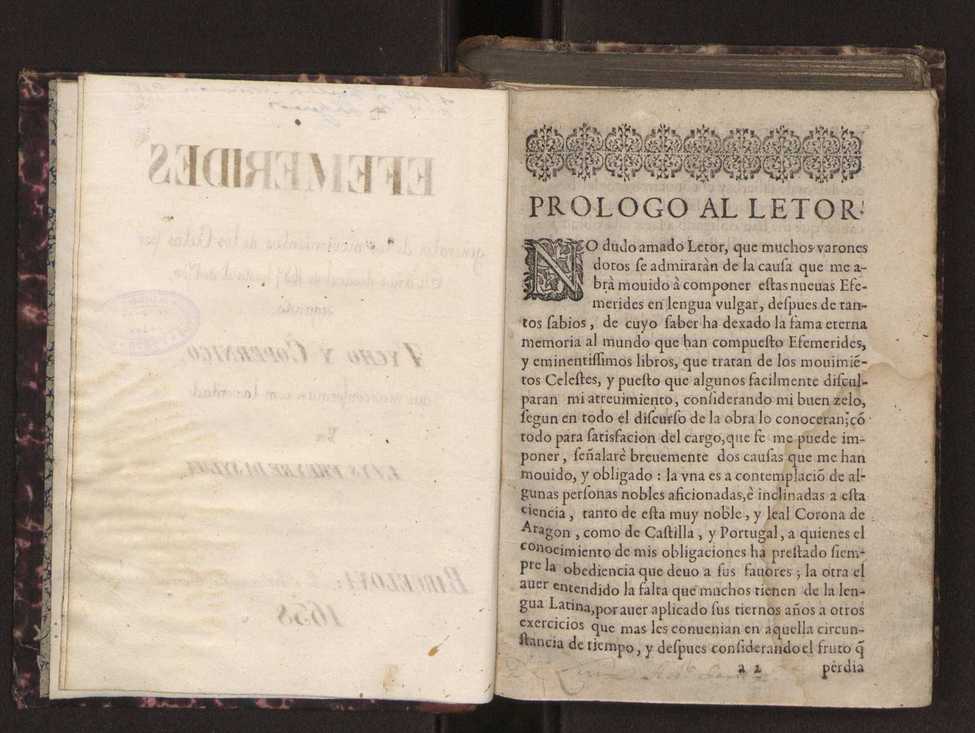 EFEMERIDES
generales de los movimientos de los Cielos por
segun
TYCHO Y COPERNICO,
que mas conforman con la verdad
Por
LUYS FREYRE DA SYLVA
BARCELONA:
1638
PROLOGO AL LETOR.
NO dudo amado Letor, que muchos varones
dotos se admiraràn de la causa que me a-
brà mouido à componer estas nueuas Efe-
merides en lengua vulgar, despues de tan-
tos sabios, de cuyo saber ha dexado la fama eterna
memoria al mundo que han compuesto Efemerides,
y eminentissimos libros, que tratan de los mouimiē-
tos Celestes, y puesto que algunos facilmente discul-
paran mi atreuimiento, considerando mi buen zelo,
segun en todo el discurso de la obra lo conoceran; cō
todo para satisfacion del cargo, que se me puede im-
poner, señalarè breuemente dos causas que me han
mouido, y obligado: la vna es a contemplaciō de al-
gunas personas nobles aficionadas, è inclinadas a esta
ciencia, tanto de esta muy noble, y leal Corona de
Aragon, como de Castilla, y Portugal, a quienes el
conocimiento de mis obligaciones ha prestado siem-
pre la obediencia que deuo a sus fauores; la otra el
auer entendido la falta que muchos tienen de la len-
gua Latina, por auer aplicado sus tiernos años a otros
exercicios que mas les conuenian en aquella circun-
stancia de tiempo, y despues considerando el fruto q̄
a 2 perdia